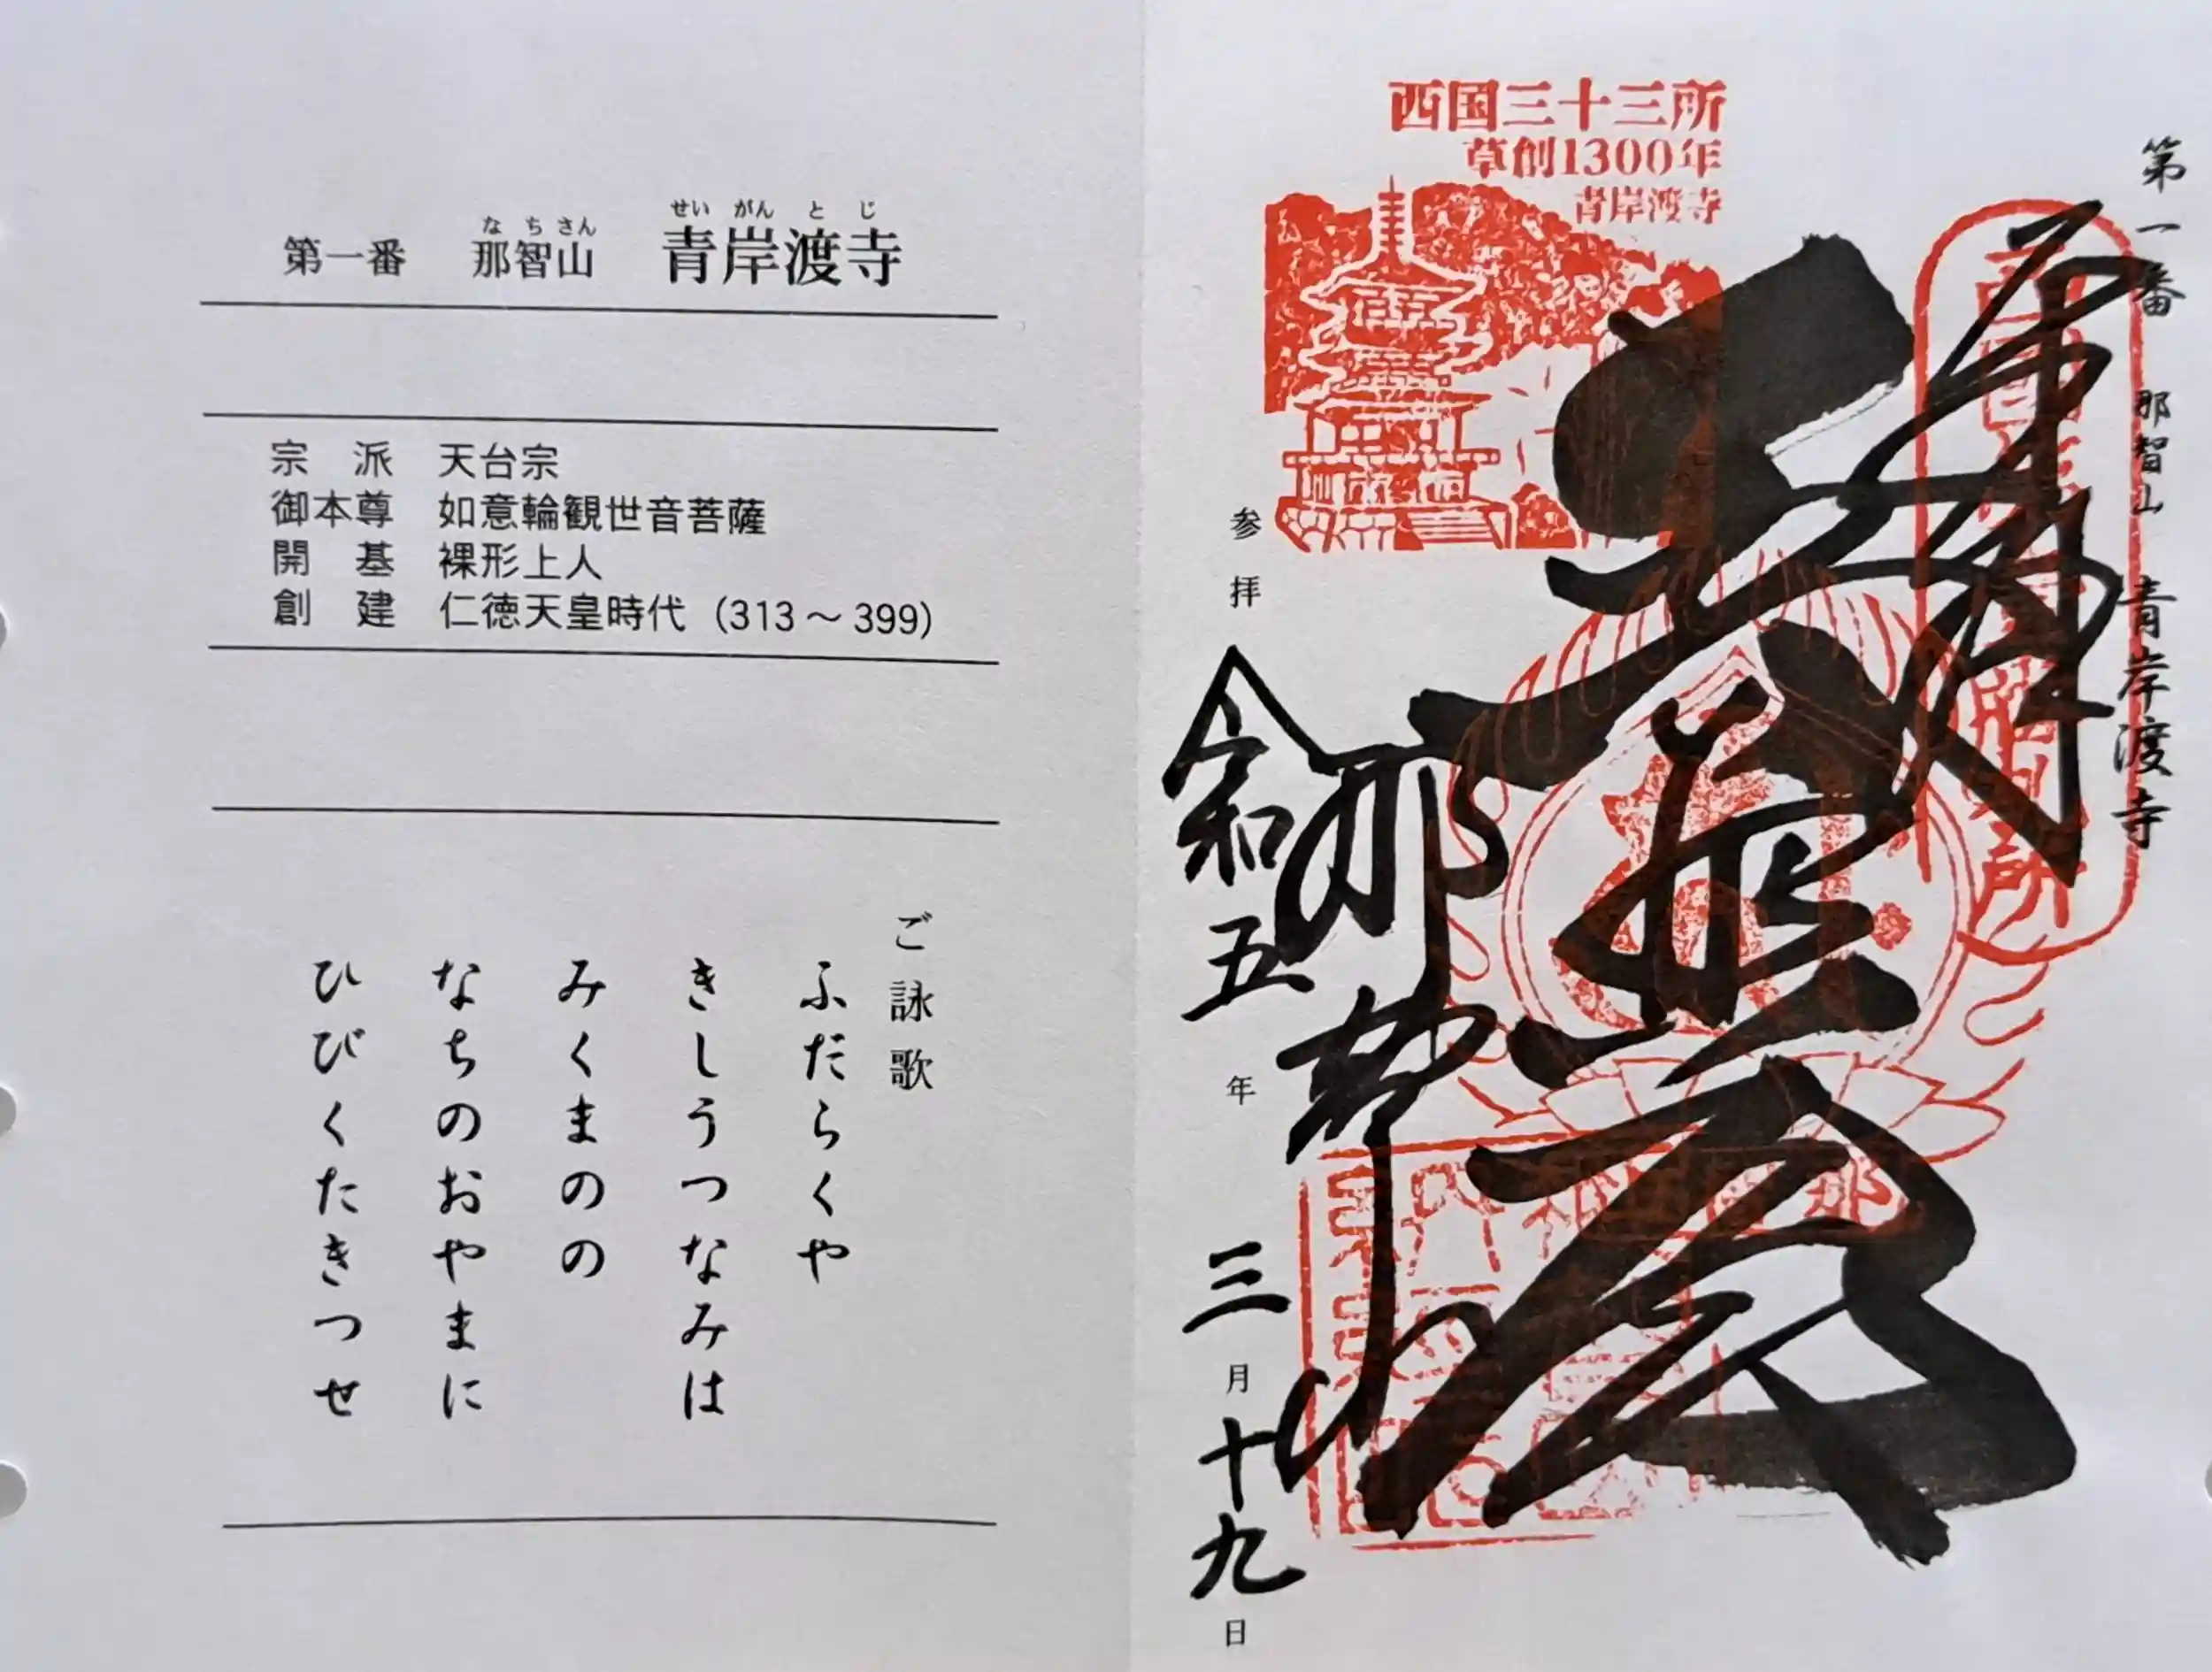 第一番 那智山 青岸渡寺
なちさん せいがんとじ
宗派 天台宗
御本尊 如意輪観世音菩薩
開基 裸形上人
創建 仁徳天皇時代 (313～399)
ご詠歌
ふだらくや
きしうつなみは
みくまのの
なちのおやまに
ひびくたきつせ
第一番 那智山 青岸渡寺
西国三十三所
草創1300年
青岸渡寺
奉拝
那智山
参拝 令和五年三月十九日